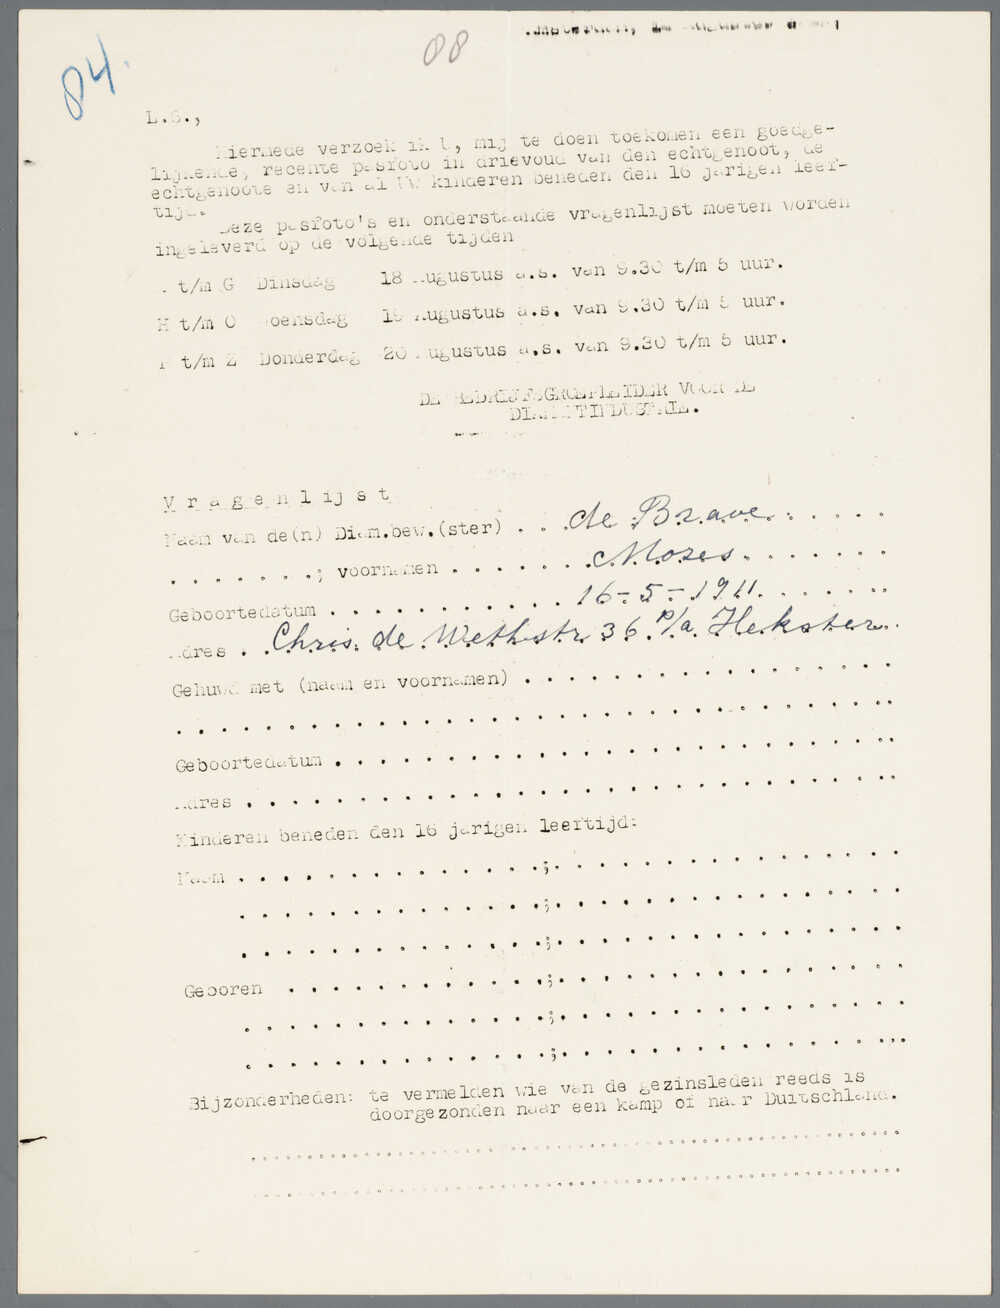 84.
08
L.S.,
Hiermede verzoek ik U, mij te doen toekomen een goedge-
lijkende, recente pasfoto in drievoud van den echtgenoot, de
echtgenoote en van al Uw kinderen beneden den 16 jarigen leef-
tijd.
Deze pasfoto's en onderstaande vragenlijst moeten worden
ingeleverd op de volgende tijden
t/m G Dinsdag 18 Augustus a.s. van 9.30 t/m 5 uur.
H t/m O Woensdag 19 Augustus a.s. van 9.30 t/m 5 uur.
P t/m Z Donderdag 20 Augustus a.s. van 9.30 t/m 5 uur.
DE BEDRIJFSGROEPLEIDER VOOR DE
DIAMANTINDUSTRIE.
Vragenlijst
Naam van de(n) Diam.bew.(ster) . . de Brave . . . . .
. . . . . . .; voornamen . . . . . . . Mozes. . . . . . .
Geboortedatum . . . . . . . . . . . 16-5-1911. . . . . . .
Adres . Chris. de Wethstr 36 p/a. Hekster. .
Gehuwd met (naam en voornamen) . . . . . . . . . . . . . . .
. . . . . . . . . . . . . . . . . . . . . . . . . . . . . . . .
Geboortedatum . . . . . . . . . . . . . . . . . . . . . . . . .
Adres . . . . . . . . . . . . . . . . . . . . . . . . . . . . .
Kinderen beneden den 16 jarigen leeftijd:
Naam . . . . . . . . . . . . . .; . . . . . . . . . . . . . . .
. . . . . . . . . . . . . .;. . . . . . . . . . . . . . .
. . . . . . . . . . . . . .;. . . . . . . . . . . . . . .
Geboren . . . . . . . . . . . .;. . . . . . . . . . . . . . .
. . . . . . . . . . . . . .;. . . . . . . . . . . . . . .
. . . . . . . . . . . . . .;. . . . . . . . . . . . . . . .
Bijzonderheden: te vermelden wie van de gezinsleden reeds is
doorgezonden naar een kamp of naar Duitschland.
............................................................
............................................................